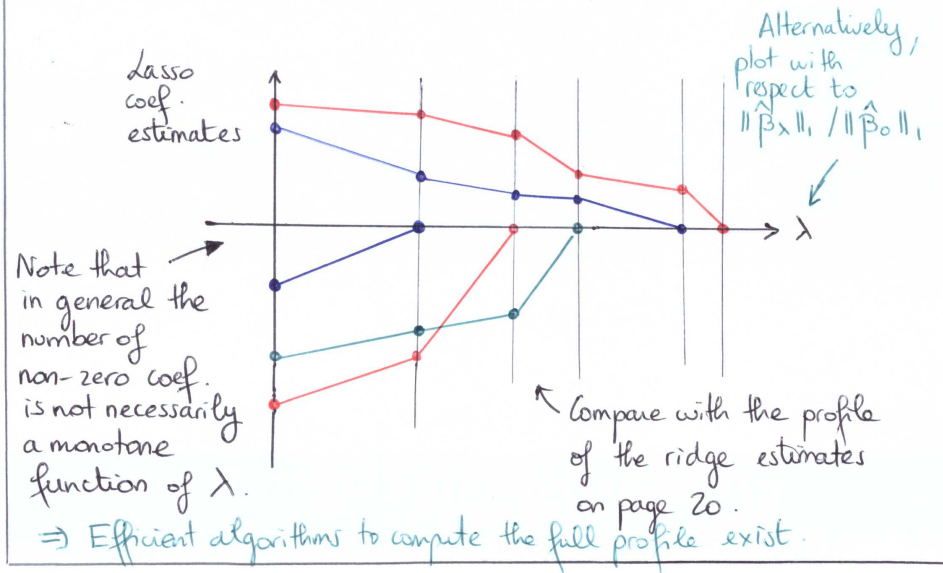 Lasso
coef.
estimates
Alternatively,
plot with
respect to
‖β̂λ‖₁ / ‖β̂₀‖₁
λ
Note that
in general the
number of
non-zero coef.
is not necessarily
a monotone
function of λ.
Compare with the profile
of the ridge estimates
on page 20.
⇒ Efficient algorithms to compute the full profile exist.